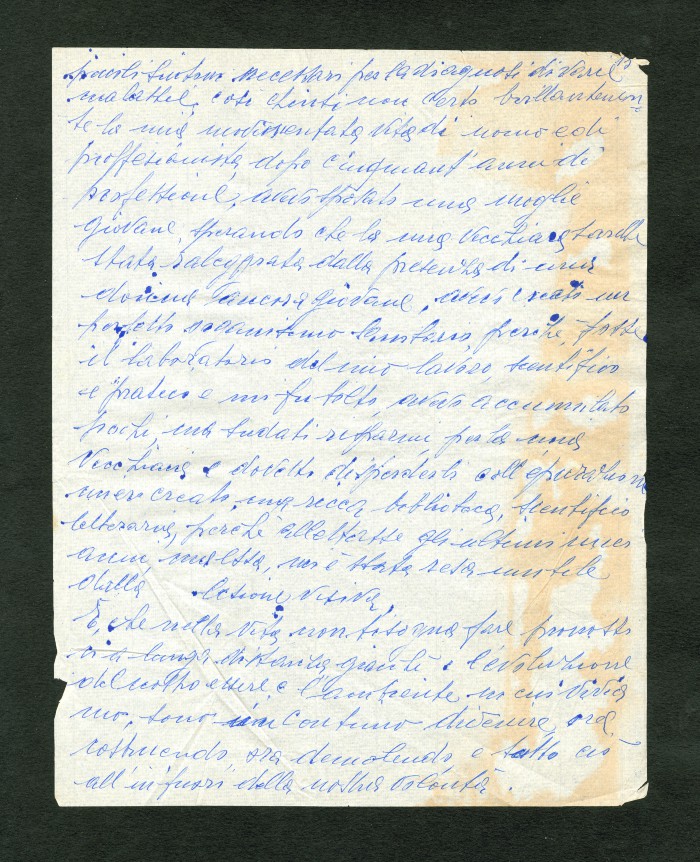 necessari per la diagnosi di varie
malattie, così chiusi non certo brillantemen=
te la mia vita di uomo e di
proffesionista, dopo cinquant'anni di
professione, avevo sposato una moglie
giovane, sperando che la mia vecchiaia sarebbe
stata dalla presenza di una
donna ancora giovane, avevo creato un
perfetto perchè fosse
il laboratorio del mio lavoro, scientifico
e pratico e mi fu tolto, avevo accumulato
pochi, ma sudati risparmi, per la mia
vecchiaia e dovetti disperderli coll'epurazione
mi ero creato una ricca biblioteca, scientifico
letteraria, perchè allettasse gli ultimi miei
anni, ma essa, mi è stata resa inutile
dalla lesione visiva.
E, che nella vita non bisogna fare pronosti
ci a lunga distanza giacchè e l'evoluzione
del nostro essere e l'ambiente in cui vivia
mo, sono in continuo divenire, ora
costruendo, ora demolendo, e tutto ciò
all'infuori della nostra volontà.